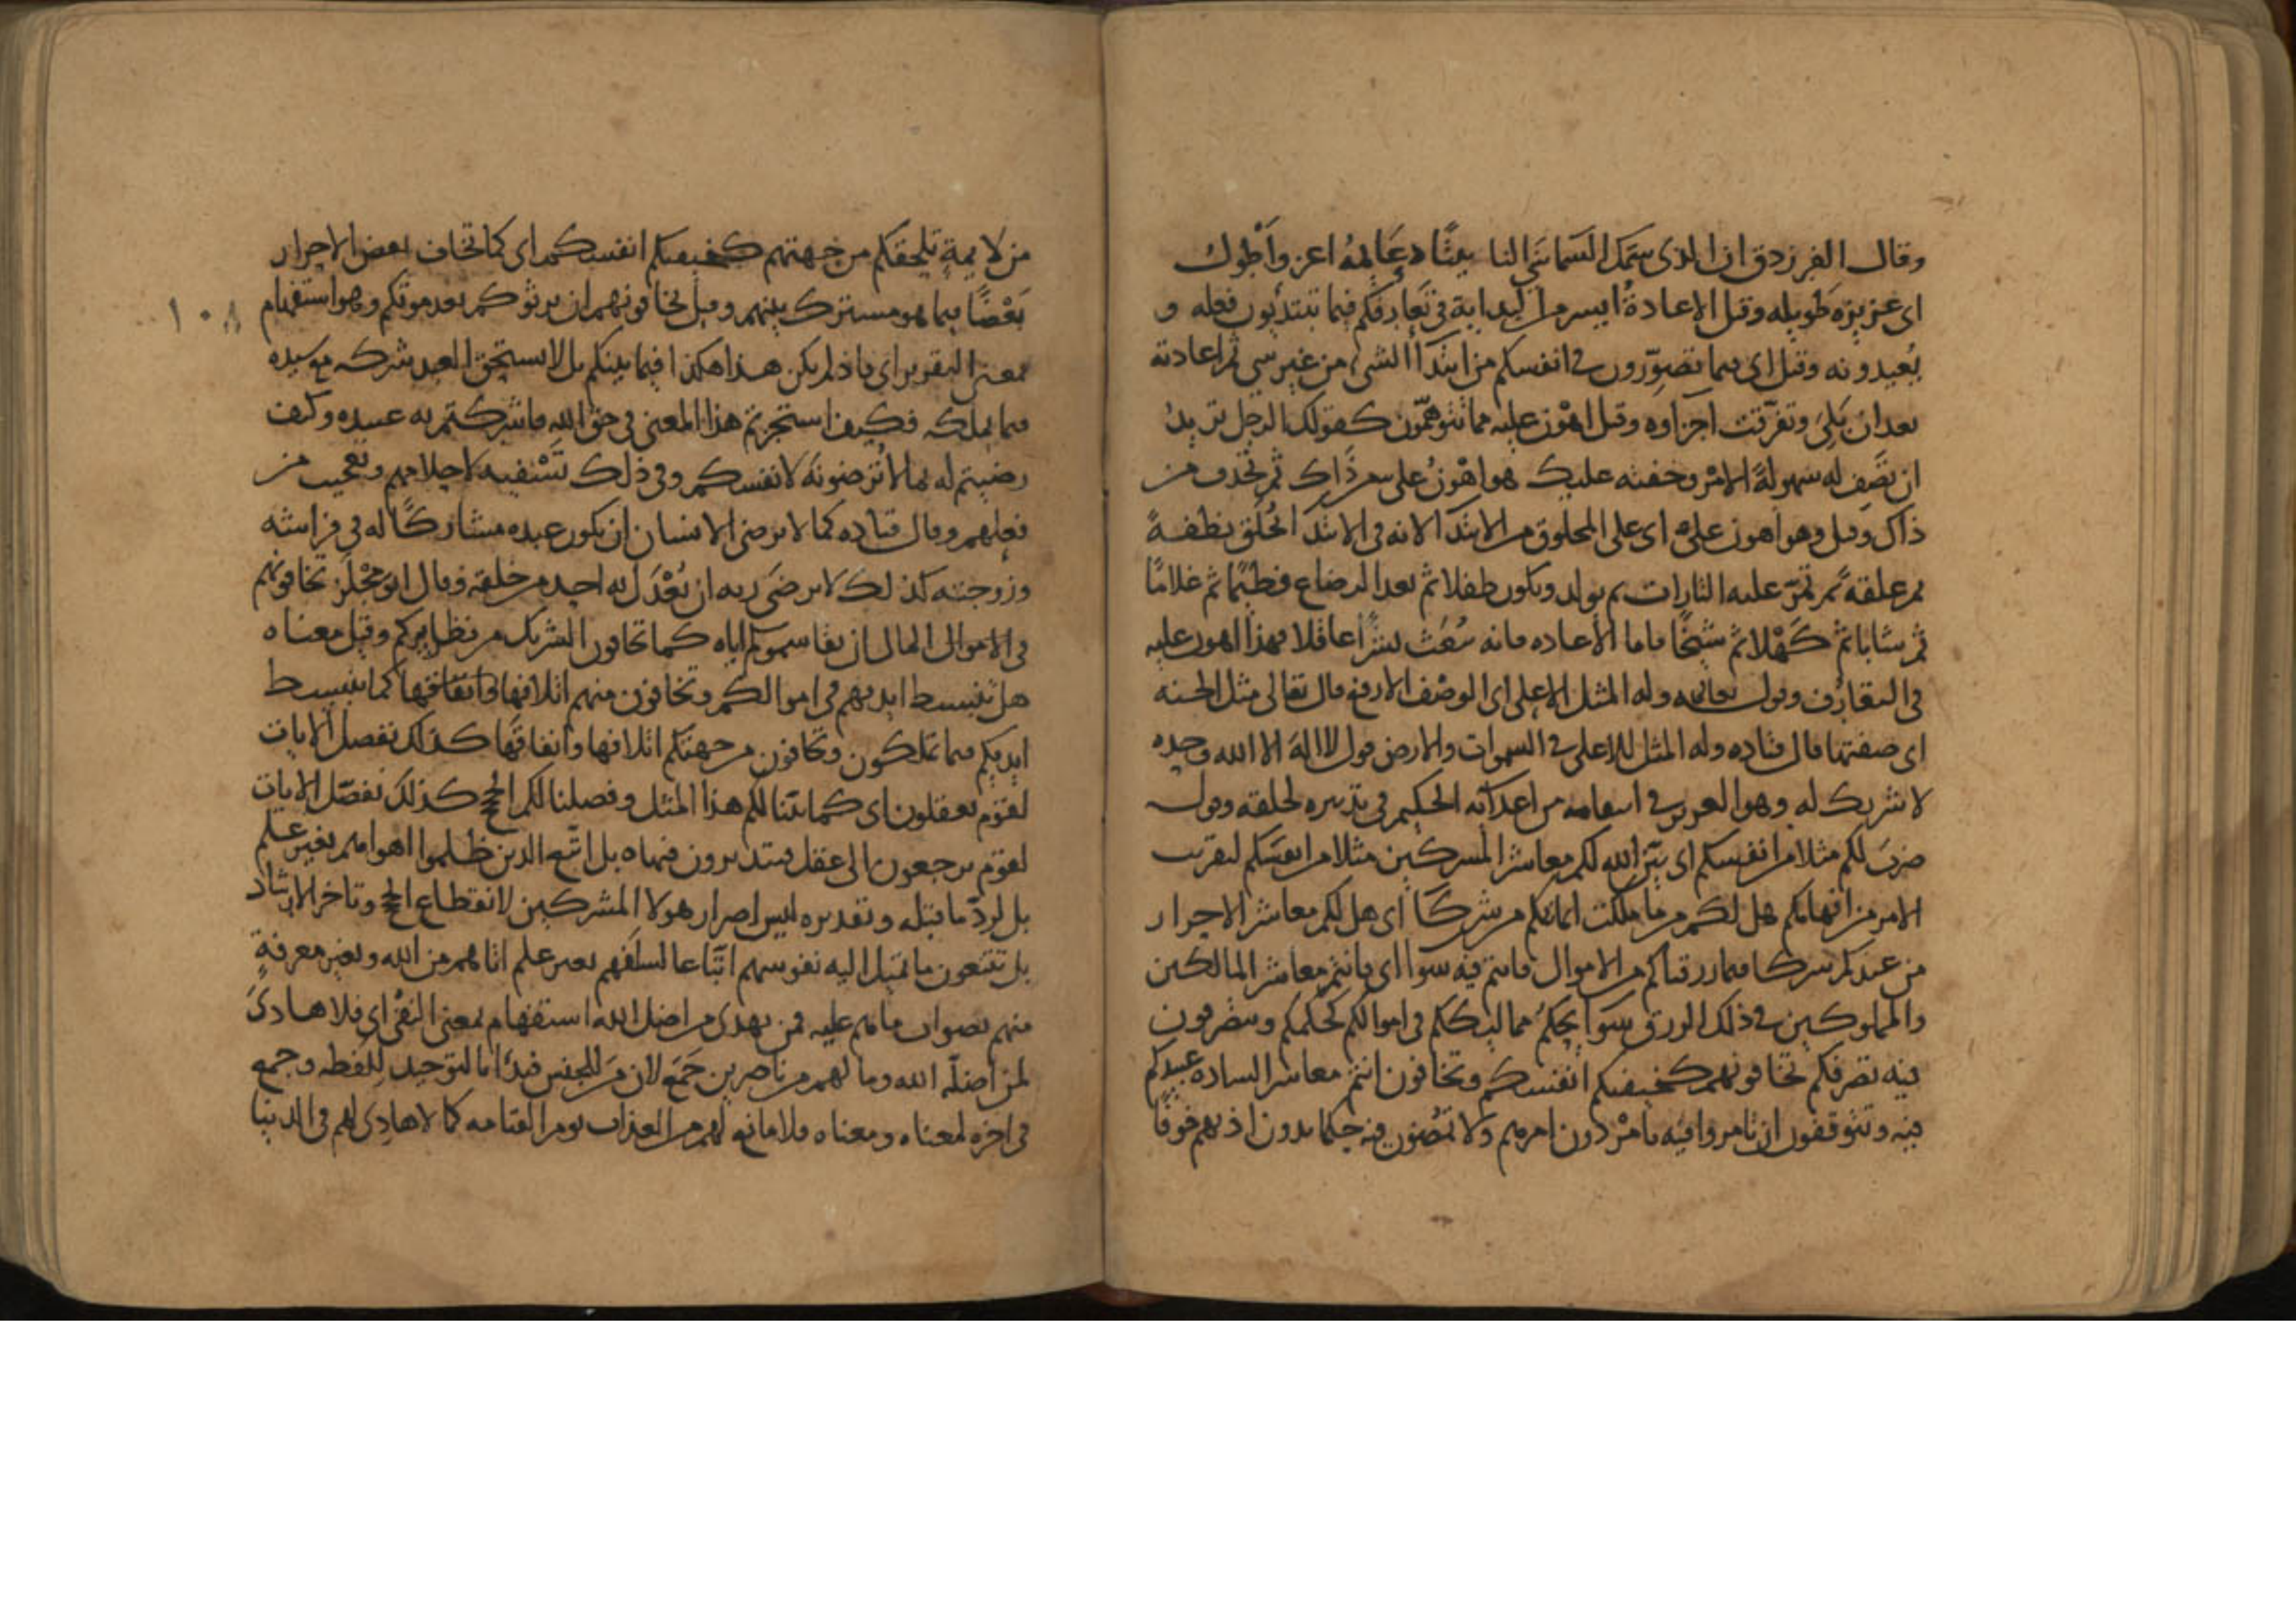 وقال الفرزدق ان الذي سمك السما بنى لنا بيتًا دعائمهُ اعز واَطول
اي عزيزة طويله وقيل الاعادةُ ايسر من البداية في تَعارفكم فيما تبتديون فعله و
تُعيدونه وقيل اي فيما تصوّرون في انفسكم من ابتدآ الشيء من غير شي ثم اعادته
بعد ان بَلِيَ وتفرّقت اجزاوه وقيل اهون عليه مما تتوهّمون كقولك الرجل تريدُ
ان تصَف له سهولةَ الامْر وخفته عليك هو اهْونُ على من ذَاك ثم تحذف من
ذاك وقيل وهو اهون عليه اي على المخلوق من الابتدَا لانه في الابتدَا خُلق نطفةً
ثم علقةً ثم تمرّ عليه التارات ثم يولد ويكون طفلا ثم بعد الرضاع فطيمًا ثم غلامًا
ثم شابا ثم كَهْلا ثم شيخًا فاما الاعاده فانه يُبعَث بشرًا عاقلا فهذا اهون عليه
في التعارُف وقوله تعالى وله المثل الاعلى اي الوصْف الارفع قال تعالى مثل الجنه
اي صفتها قال قتاده وله المثل الاعلى في السموات والارض قول لا الهَ الا الله وحده
لا شريك له وهو العزيز في انتقامه من اعدآئه الحكيم في تدبيره لخلقه وقوله
ضربَ لكم مثلا من انفسكم اي بيّن الله لكم معاشر المشركين مثلا من انفسكم لتقريب
الامر من افهامكم هل لكم من ما ملكت ايمانكم من شركَا اي هل لكم معاشر الاحرار
من عبيدكم شركا فيما رزقناكم من الاموال فانتم فيه سوآ اي فانتم معاشر المالكين
والمملوكين في ذلك الرزق سوَا يحكمُ مماليككم في اموالكم كحكمكم ويتصرفون
فيه تصرفكم تخافونهم كخيفتكم انفسكم وتخافون انتم معاشر الساده عبيدكم
فيه وتتوقفون ان تامروا فيه بامْرْ دون امرهم ولا تمضون فيه حكما بدون اذنهم خوفًا
من لايمةٍ تلحقكم من جهتهم كخيفتكم انفسكم اي كما تخاف بعض الاحرار
بَعْضًا فيما هو مشترك بينهم وقيل تخافونهم ان يرثوكم بعد موتكم وهو استفهام
١٠٨
بمعنى التقرير اي فاذا لم يكن هذا هكذا فيما بينكم بل لا يستحق العبد شركه مع سيده
فيما يملكه فكيف استجزتم هذا المعنى في حق الله فاشركتم به عبيده وكيف
رضيتم له بما لا تُرضونَهُ لانفسكم وفي ذلك تَسْفيه لاحلامهم وتعجيب من
فعلهم وقال قتاده كما لا يرضى الانسان ان يكون عبده مشاركًا له في فراشه
وزوجته كذلك لا يرضَى ربه ان يُعْدَل به احد من خلقه وقال ابو مِجْلَز تخافونهم
في الاموال المال ان يقاسموكم اياه كما تخافون الشريك من نظايركم وقيل معناه
هل تنبسط ايديهم في اموالكم وتخافون منهم اتلافها وانفاقها كما تنبسط
ايديكم فيما تملكون وتخافون من جهتكم اتلافها وانفاقَها كذلك نفصل الايات
لقوم يعقلون اي كما بيّنا لكم هذا المثل وفصلنا لكم الحجج كذلك نفصّل الايات
لقوم يرجعون الى عقل يتدبرون فيهاه بل اتّبع الذين ظلموا اهواهم بغير علم
بل لردّ ما قبله وتقديره ليس اصرار هولا المشركين لانقطاع الحجج وتاخر الارشاد
بل يتبعون ما تميل اليه نفوسهم اتّباعا لسلفهم بغير علم اتاهم من الله وبغير معرفةٍ
منهم بصواب ما هم عليه فمن يهدى من اضل الله استفهام بمعنى النفْى اي فلا هاديَ
لمن اضلّه الله وما لهم من ناصرين جَمَع لان مَن للجنس فبدَا بالتوحيد للفظه وجمع
في اخره لمعناه ومعناه فلا مانع لهم من العذاب يوم القيامه كما لا هادِى لهم في الدنيا